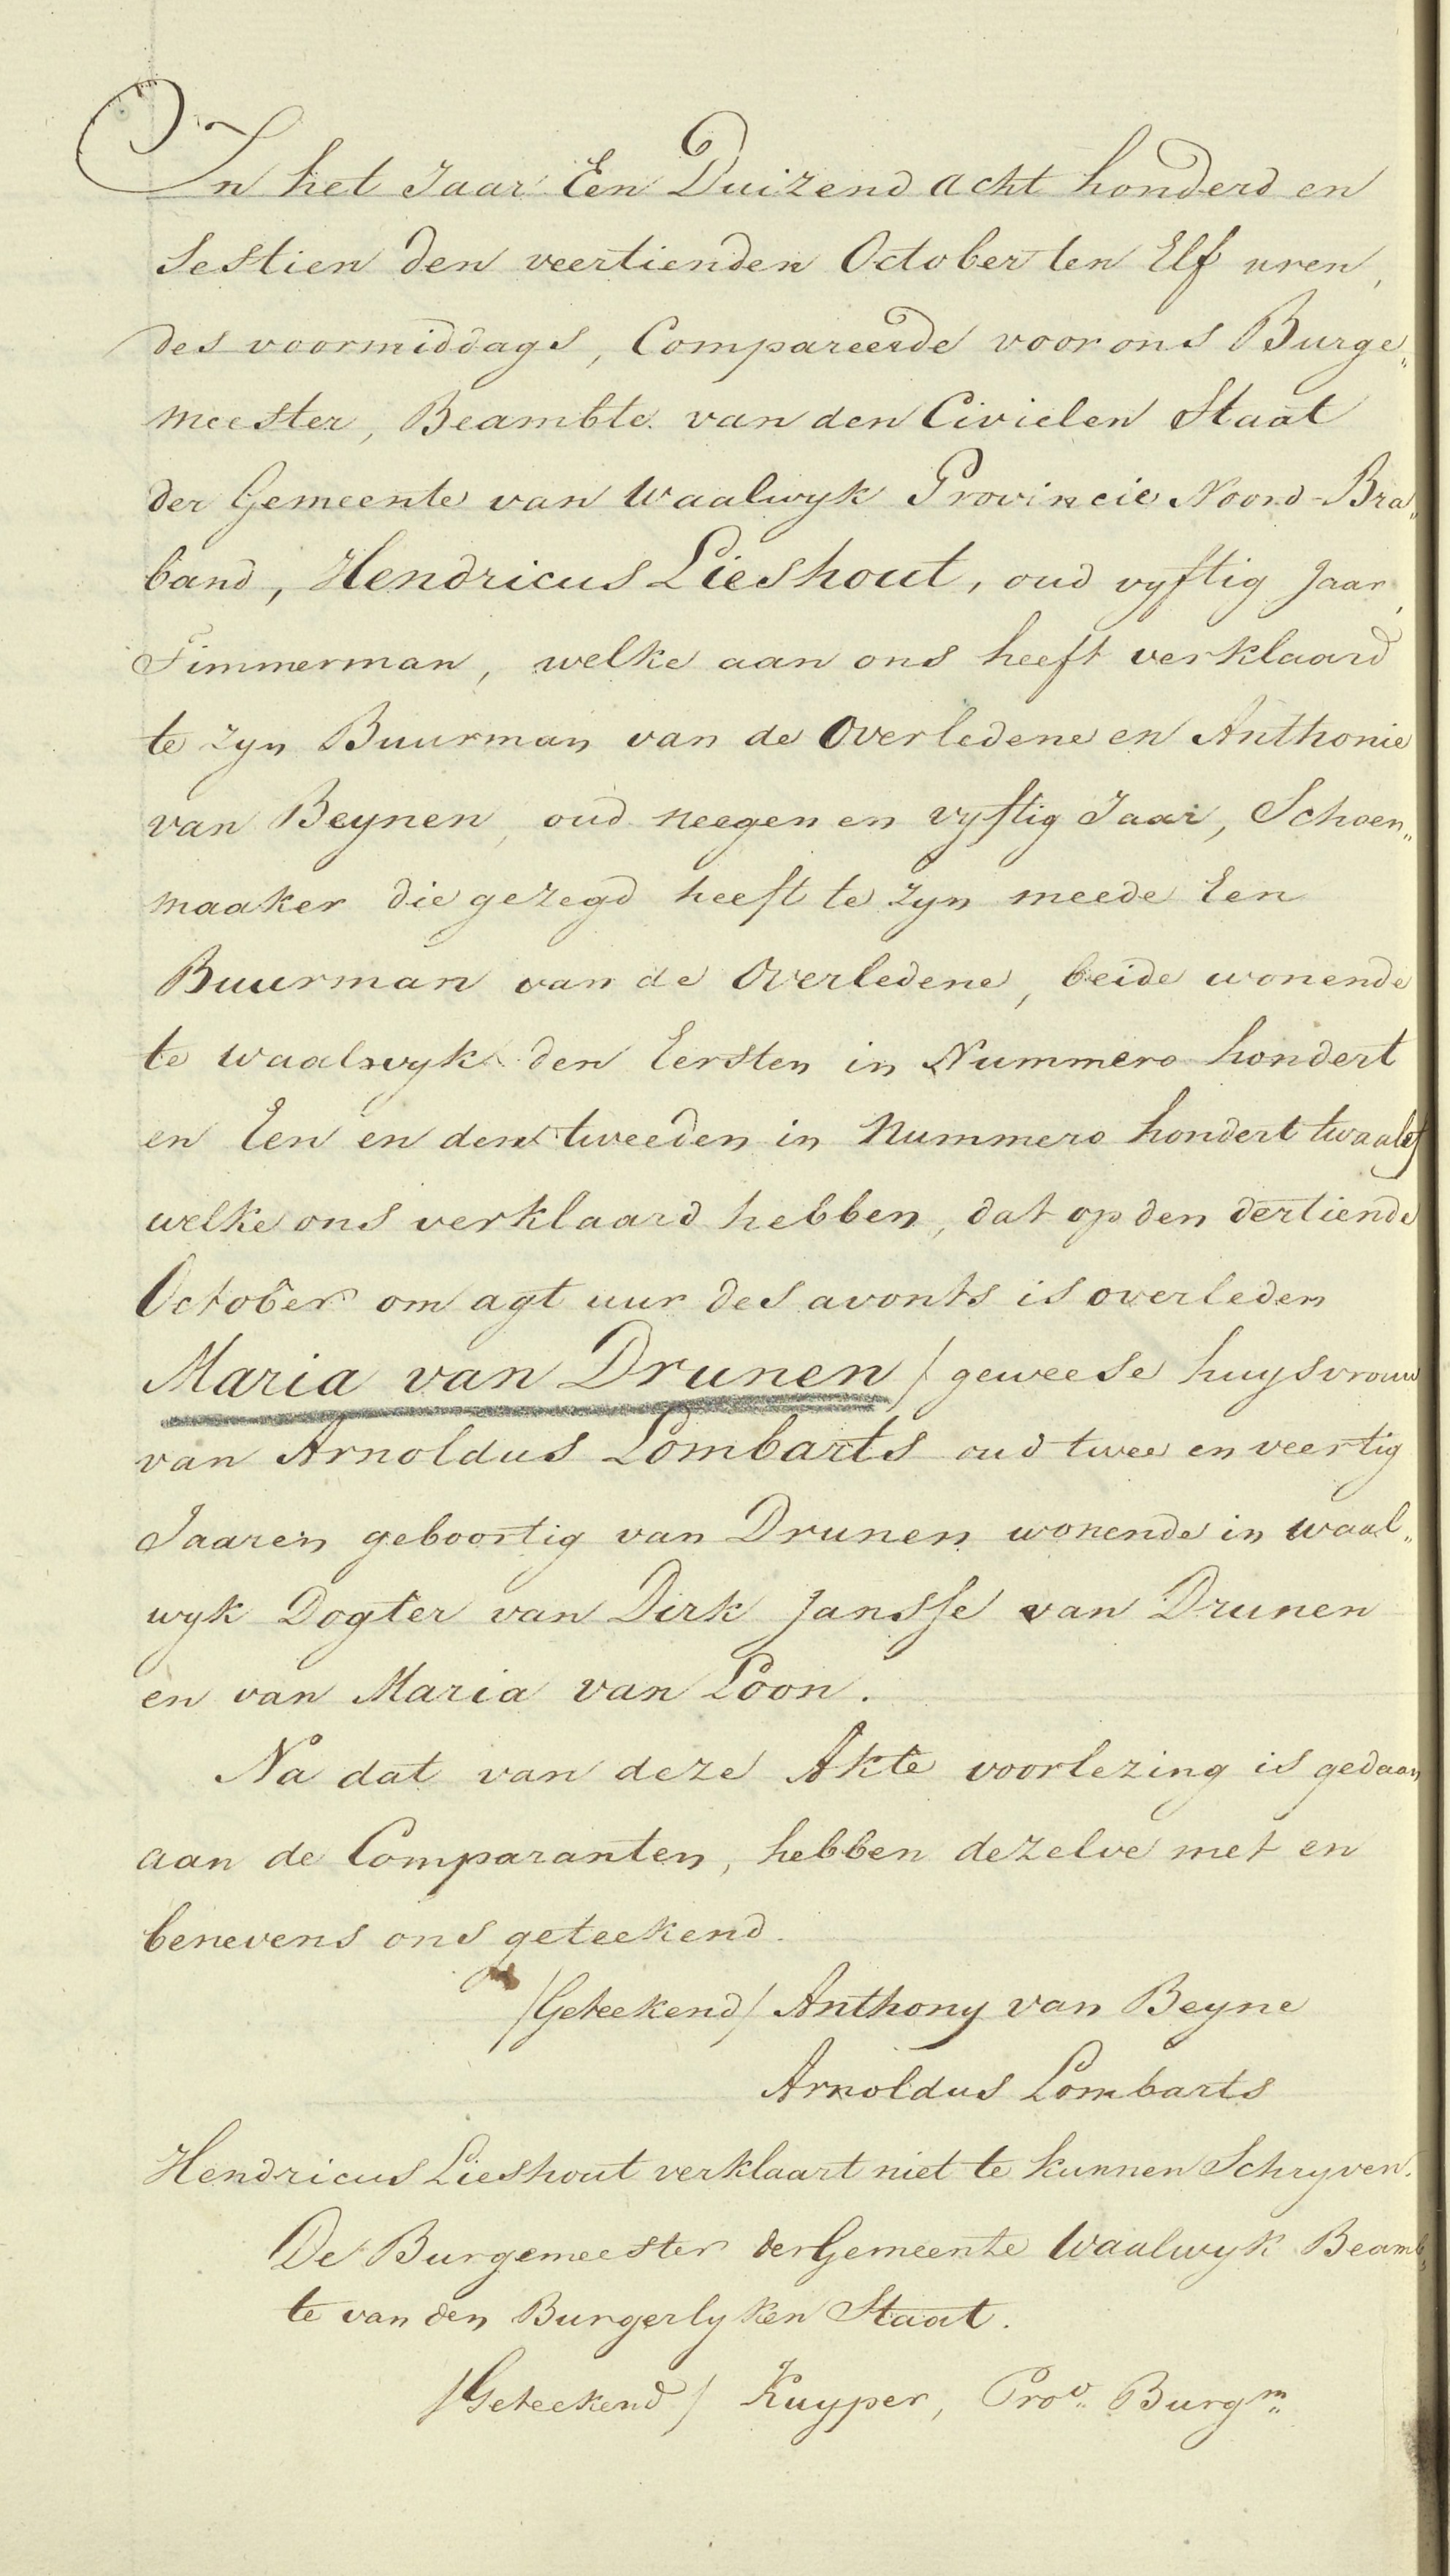 In het Jaar Een Duizend acht honderd en
Sestien den veertienden October ten Elf uren,
des voormiddags, Compareerde voor ons Burge„
meester, Beambte van den Civielen Staat
der Gemeente van Waalwyk Provincie Noord-Bra„
band, Hendricus Lieshout, oud vyftig Jaar,
Timmerman, welke aan ons heeft verklaard
te zyn Buurman van de Overledene en Anthonie
van Beynen, oud neegen en vyftig Jaar, Schoen„
maaker die gezegd heeft te zyn meede Een
Buurman van de Overledene, beide wonende
te Waalwyk den Eersten in Nummero hondert
en Een en den tweeden in Nummero hondert twaalf
welke ons verklaard hebben, dat op den dertiende
October om agt uur des avonts is overleden
Maria van Drunen / geweese huysvrouw
van Arnoldus Lombarts oud twee en veertig
Jaaren geboortig van Drunen wonende in Waal„
wyk Dogter van Dirk Jansse van Drunen
en van Maria van Loon.
Na dat van deze Akte voorlezing is gedaan
aan de Comparanten, hebben dezelve met en
benevens ons geteekend.
/Geteekend/ Anthony van Beyne
Arnoldus Lombarts
Hendricus Lieshout verklaart niet te kunnen Schryven.
De Burgemeester der Gemeente Waalwyk Beamb„
te van den Burgerlyken Staat.
/Geteekend/ Kuyper, Provl. Burgm.